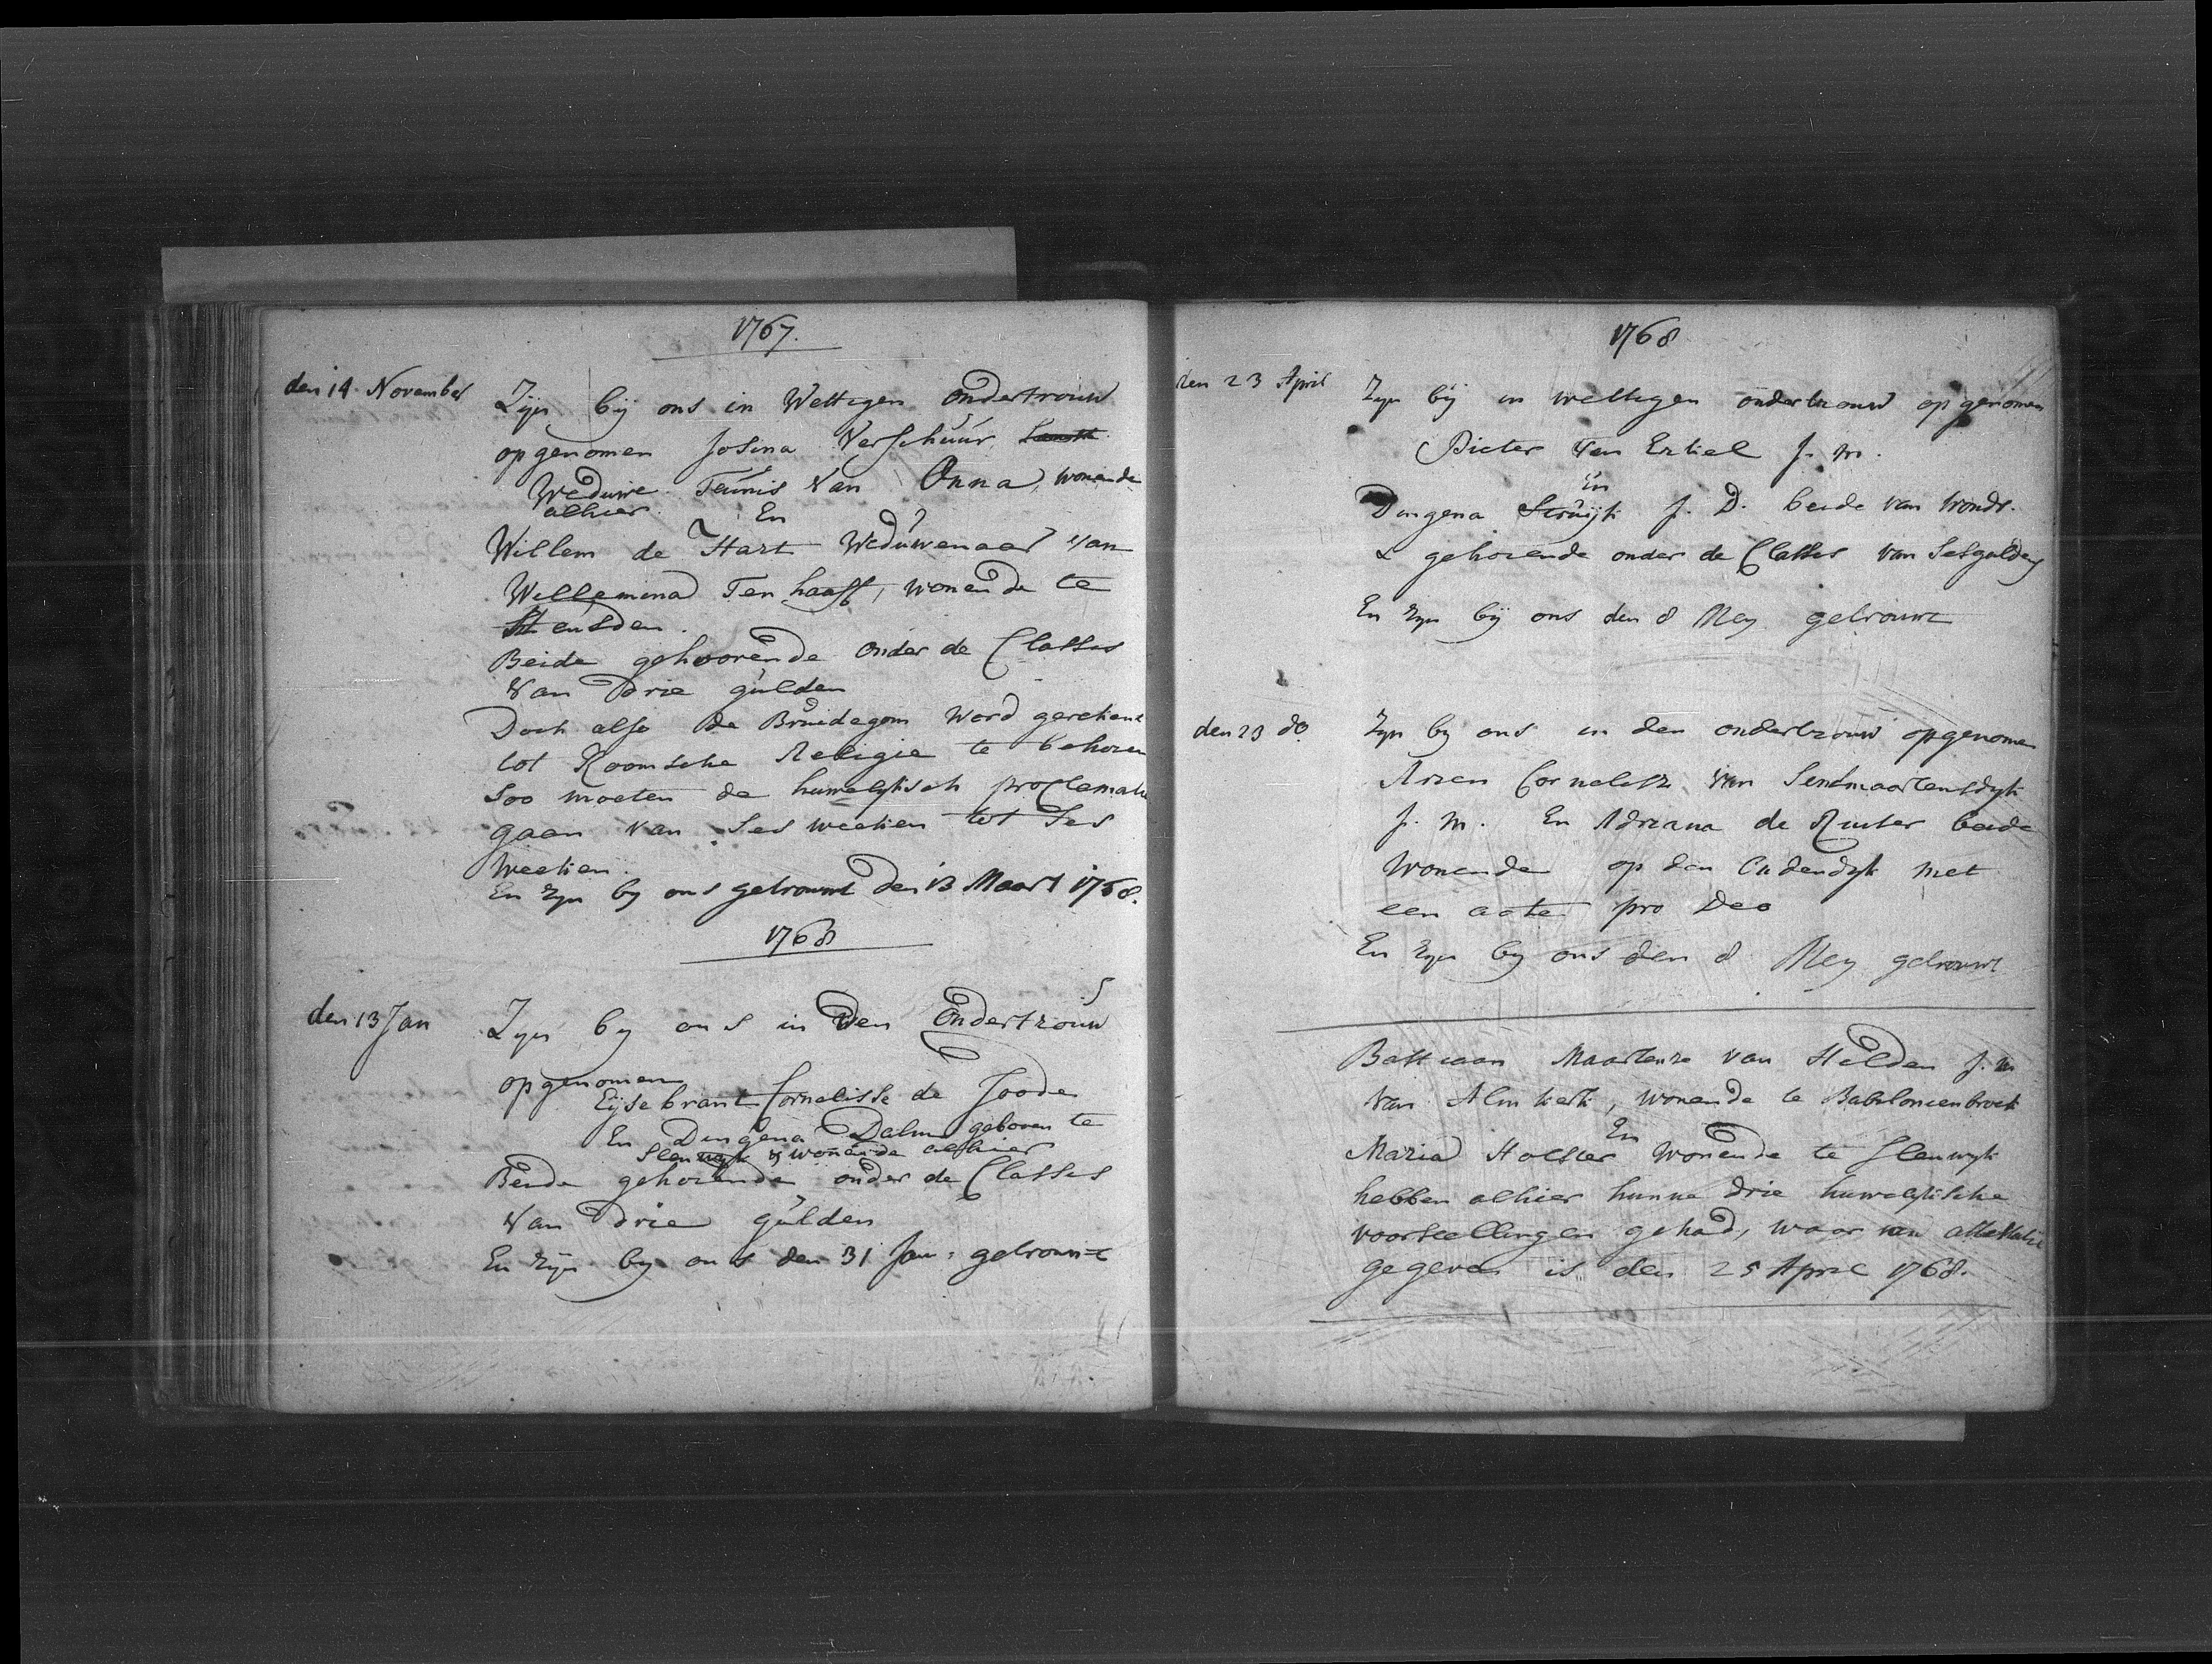 1767.
den 14 November
Zijn bij ons in Wettigen ondertrouw
opgenomen Josina Verschuur
Weduwe Teunis Van Onna, wonende
alhier En
Willem de Hart Weduwenaar van
Willemina Ten haaff, wonende te
Heusden.
Beide gehoorende onder de Classis
Van Drie gulden
Doch also de Bruidegom word gerekent
tot Roomsche Religie te behoren
Soo moeten de huwelykisch proclamatie
gaan van Ses weeken tot Ses
Weeken.
En Zyn by ons getrouwt den 13 Maart 1768.
1768
den 13 Jan
Zyn by ons in Den Ondertrouw
opgenomen
Eijsebrant Cornelisse de Joode
En Dingena Dalm geboren te
Sleuwyk & wonende alhier
Beide gehorende onder de Classes
Van Drie gulden
En Zyn by ons den 31 Jan: getrouwt
1768
den 23 April
Zyn bij in wettigen ondertrouw opgenomen
Pieter Van Erkel J. m.
En
Dingena Struijk J. D. beide van Woudr.
& gehorende onder de Classes van Sesgulden
En Zyn bij ons den 8 Mey getrouwt
den 23 do
Zyn by ons in den ondertrouw opgenomen
Arien Cornelisz van Sentmaartensdyk
J. m. En Adriana de Ruiter beide
Wonende op den Oudendyk met
een acte pro Deo
En Zyn by ons den 8 Mey getrouwt
Bastiaan Maartense van Helden J. m
Van Almkerk, wonende te Babiloncenbroek
En
Maria Holster Wonende te Sleuwyk
hebben alhier hunne drie huwelykische
voorstellingen gehad, waar van attestatie
gegeven is den 25 April 1768.